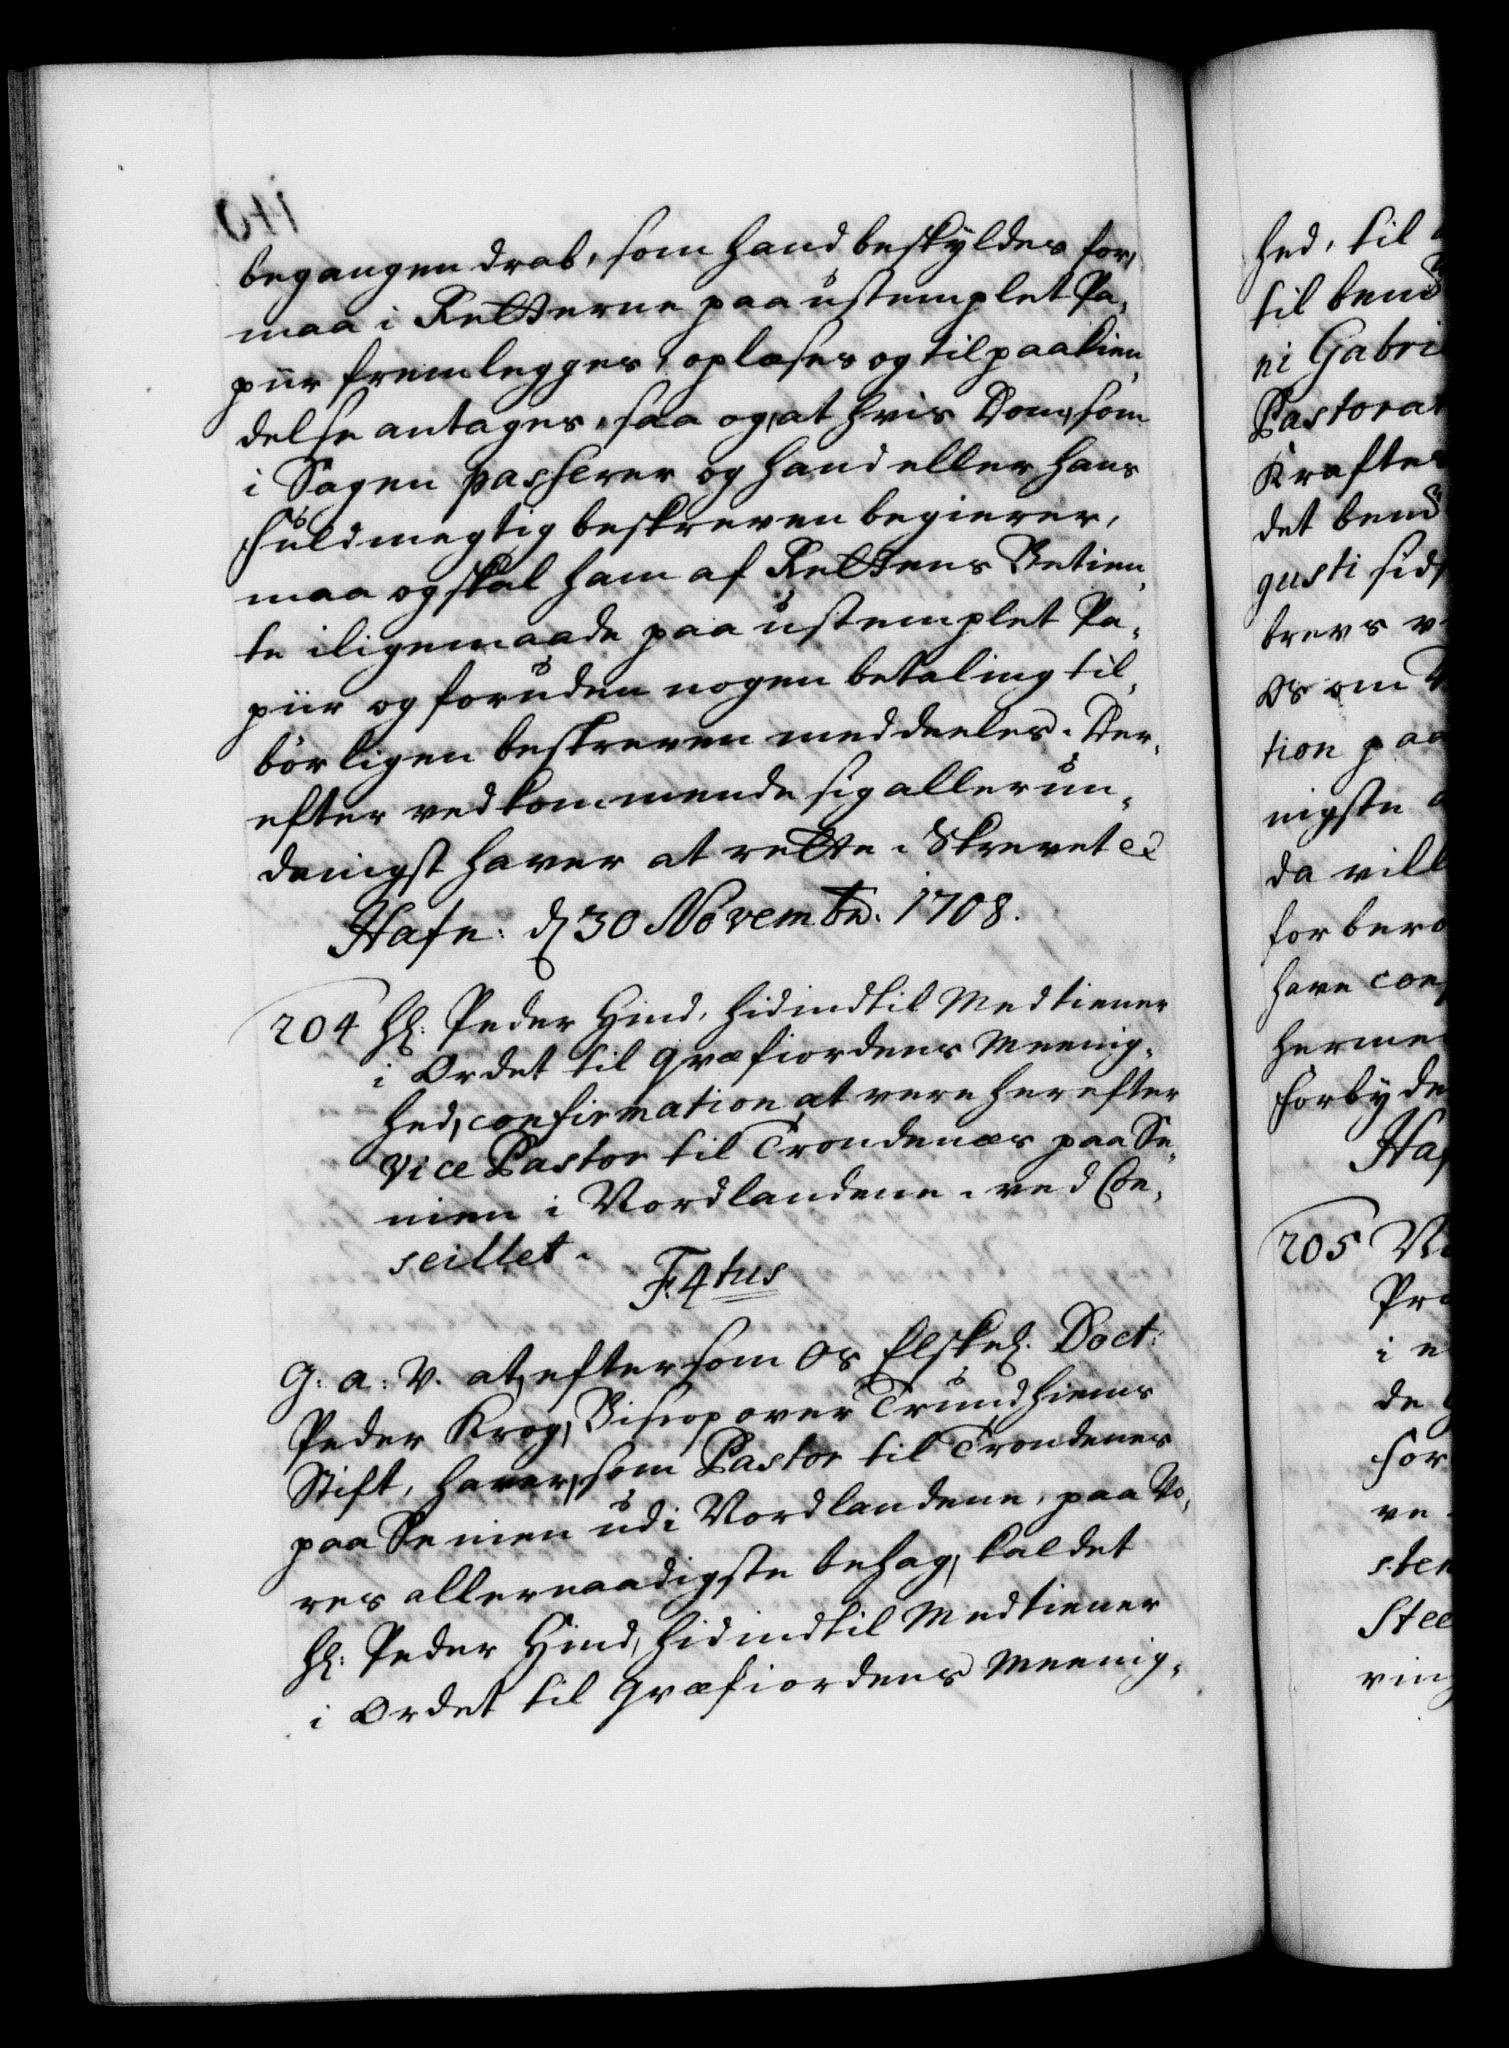 begangen drab, som hand beskyldes for,
maa i Retterne paa ustemplet Pa,
piir fremlegges, oplæses og til paakien,
delse antages, saa og, at hvis Dom, som
i Sagen passerer og hand eller hans
fuldmegtig beskreven begierer,
maa og skal ham af Rettens Betien,
te iligemaade paa ustemplet Pa,
piir og foruden nogen betaling til,
börligen beskreven meddeeles. Der,
efter vedkommende sig allerun,
denigst haver at rette. Skrevet
Hafn: d 30 Novembr. 1708.
204 Hr: Peder Hind, hidindtil Medtiener
i Ordet til Græsiordens Meenig,
hed, confirmation at være herefter
Vice Pastor til Trondenæs paa Se,
nien i Nordlandene. ved Con,
seillet.
F. 4tus
G: a: V. at, eftersom Os Elskel. Doct:
Peder Krog, Biscop over Trundhiems
Stift, haver, som Pastor til Trondenes
paa Senien udi Nordlandene, paa Vo,
res allernaadigste behag, kaldet
Hr: Peder Hind, hidindtil Medtiener
i Ordet til Græsiordens Meenig,
hed, til
til bem
ni Gabri
Pastorat
Krafte
det bem
gusti sids
brevs v
Os om
tion paa
nigste
da vill
for ber
have con
herme
forbyde
Haf
205
Pr
i
de
for
ve
sten
Stee
ring